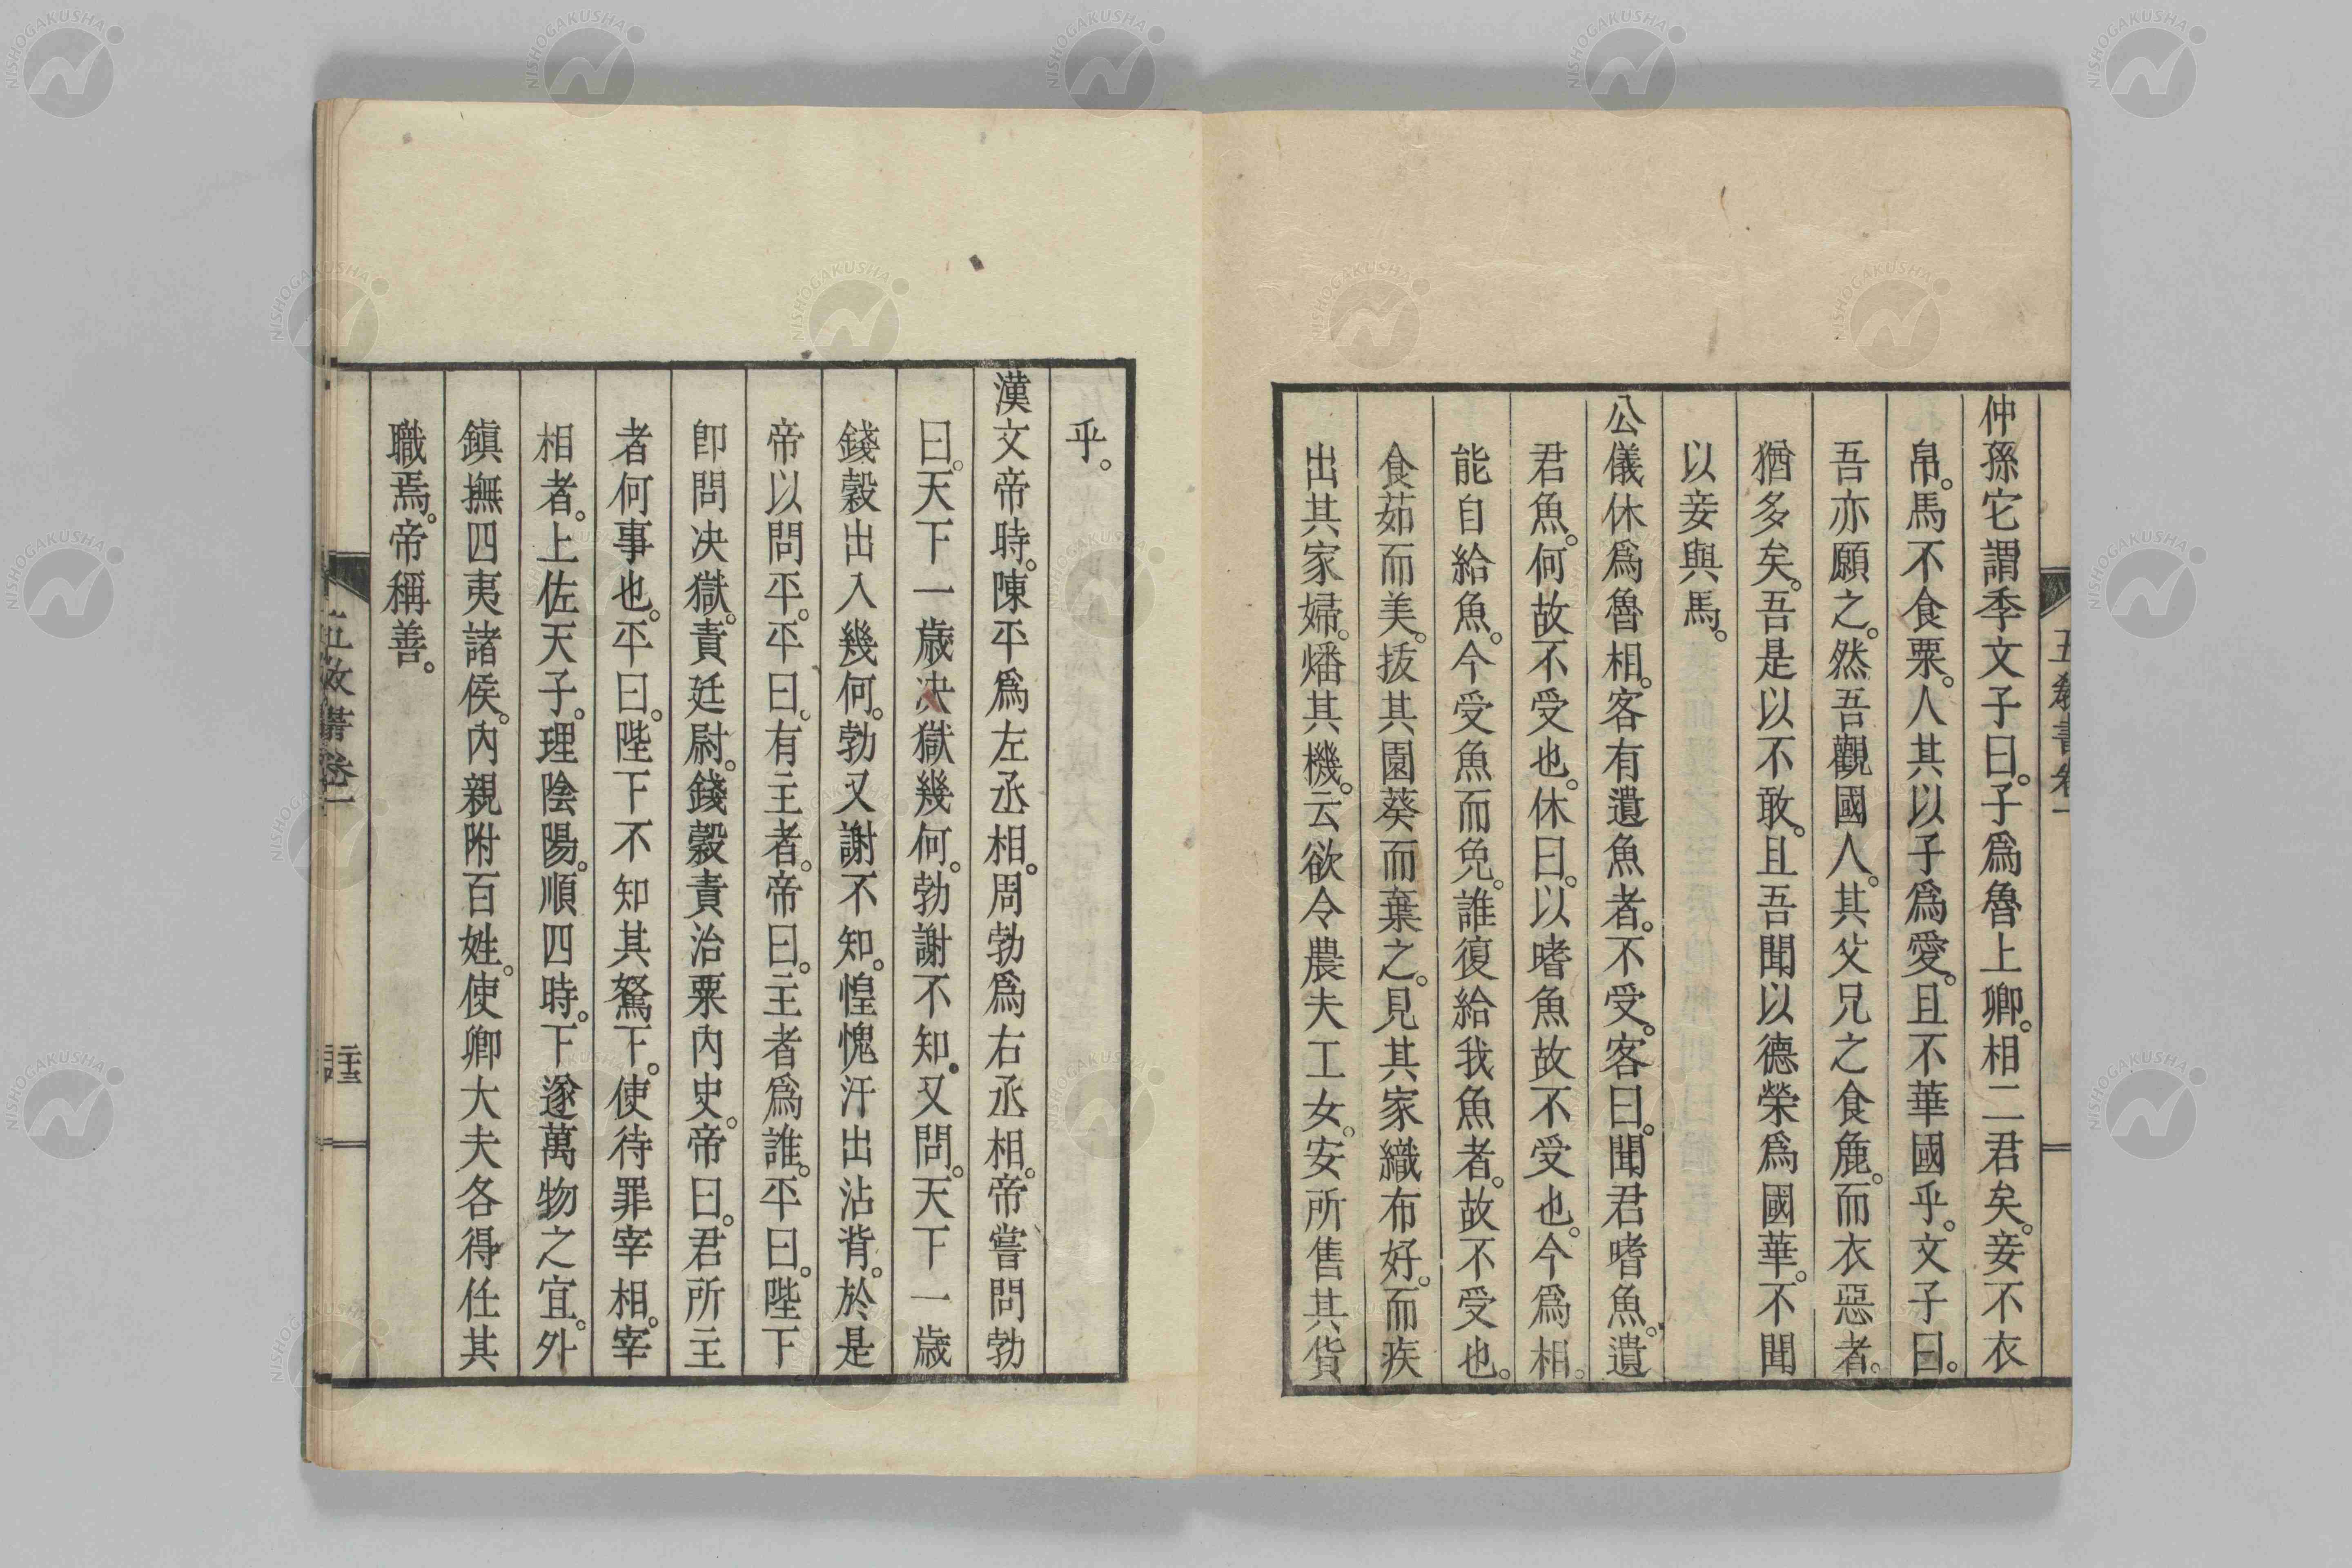 仲孫它謂季文子曰。子爲魯上卿。相二君矣。妾不衣
帛。馬不食粟。人其以子爲愛。且不華國乎。文子曰。
吾亦願之。然吾觀國人。其父兄之食麁。而衣惡者。
猶多矣。吾是以不敢。且吾聞以德榮爲國華。不聞
以妾與馬。
公儀休爲魯相。客有遺魚者。不受。客曰。聞君嗜魚。遺
君魚。何故不受也。休曰。以嗜魚故不受也。今爲相。
能自給魚。今受魚而免。誰復給我魚者。故不受也。
食茹而美。拔其園葵而棄之。見其家織布好。而疾
出其家婦。燔其機。云欲令農夫工女。安所售其貨
乎。
漢文帝時。陳平爲左丞相。周勃爲右丞相。帝嘗問勃
曰。天下一歲决獄幾何。勃謝不知。又問。天下一歲
錢穀出入幾何。勃又謝不知。惶愧汗出沾背。於是
帝以問平。平曰。有主者。帝曰。主者爲誰。平曰。陛下
卽問决獄。責廷尉。錢穀責治粟內史。帝曰。君所主
者何事也。平曰。陛下不知其駑下。使待罪宰相。宰
相者。上佐天子。理陰陽。順四時。下遂萬物之宜。外
鎭撫四夷諸侯。內親附百姓。使卿大夫各得任其
職焉。帝稱善。
NISHOGAKUSHA